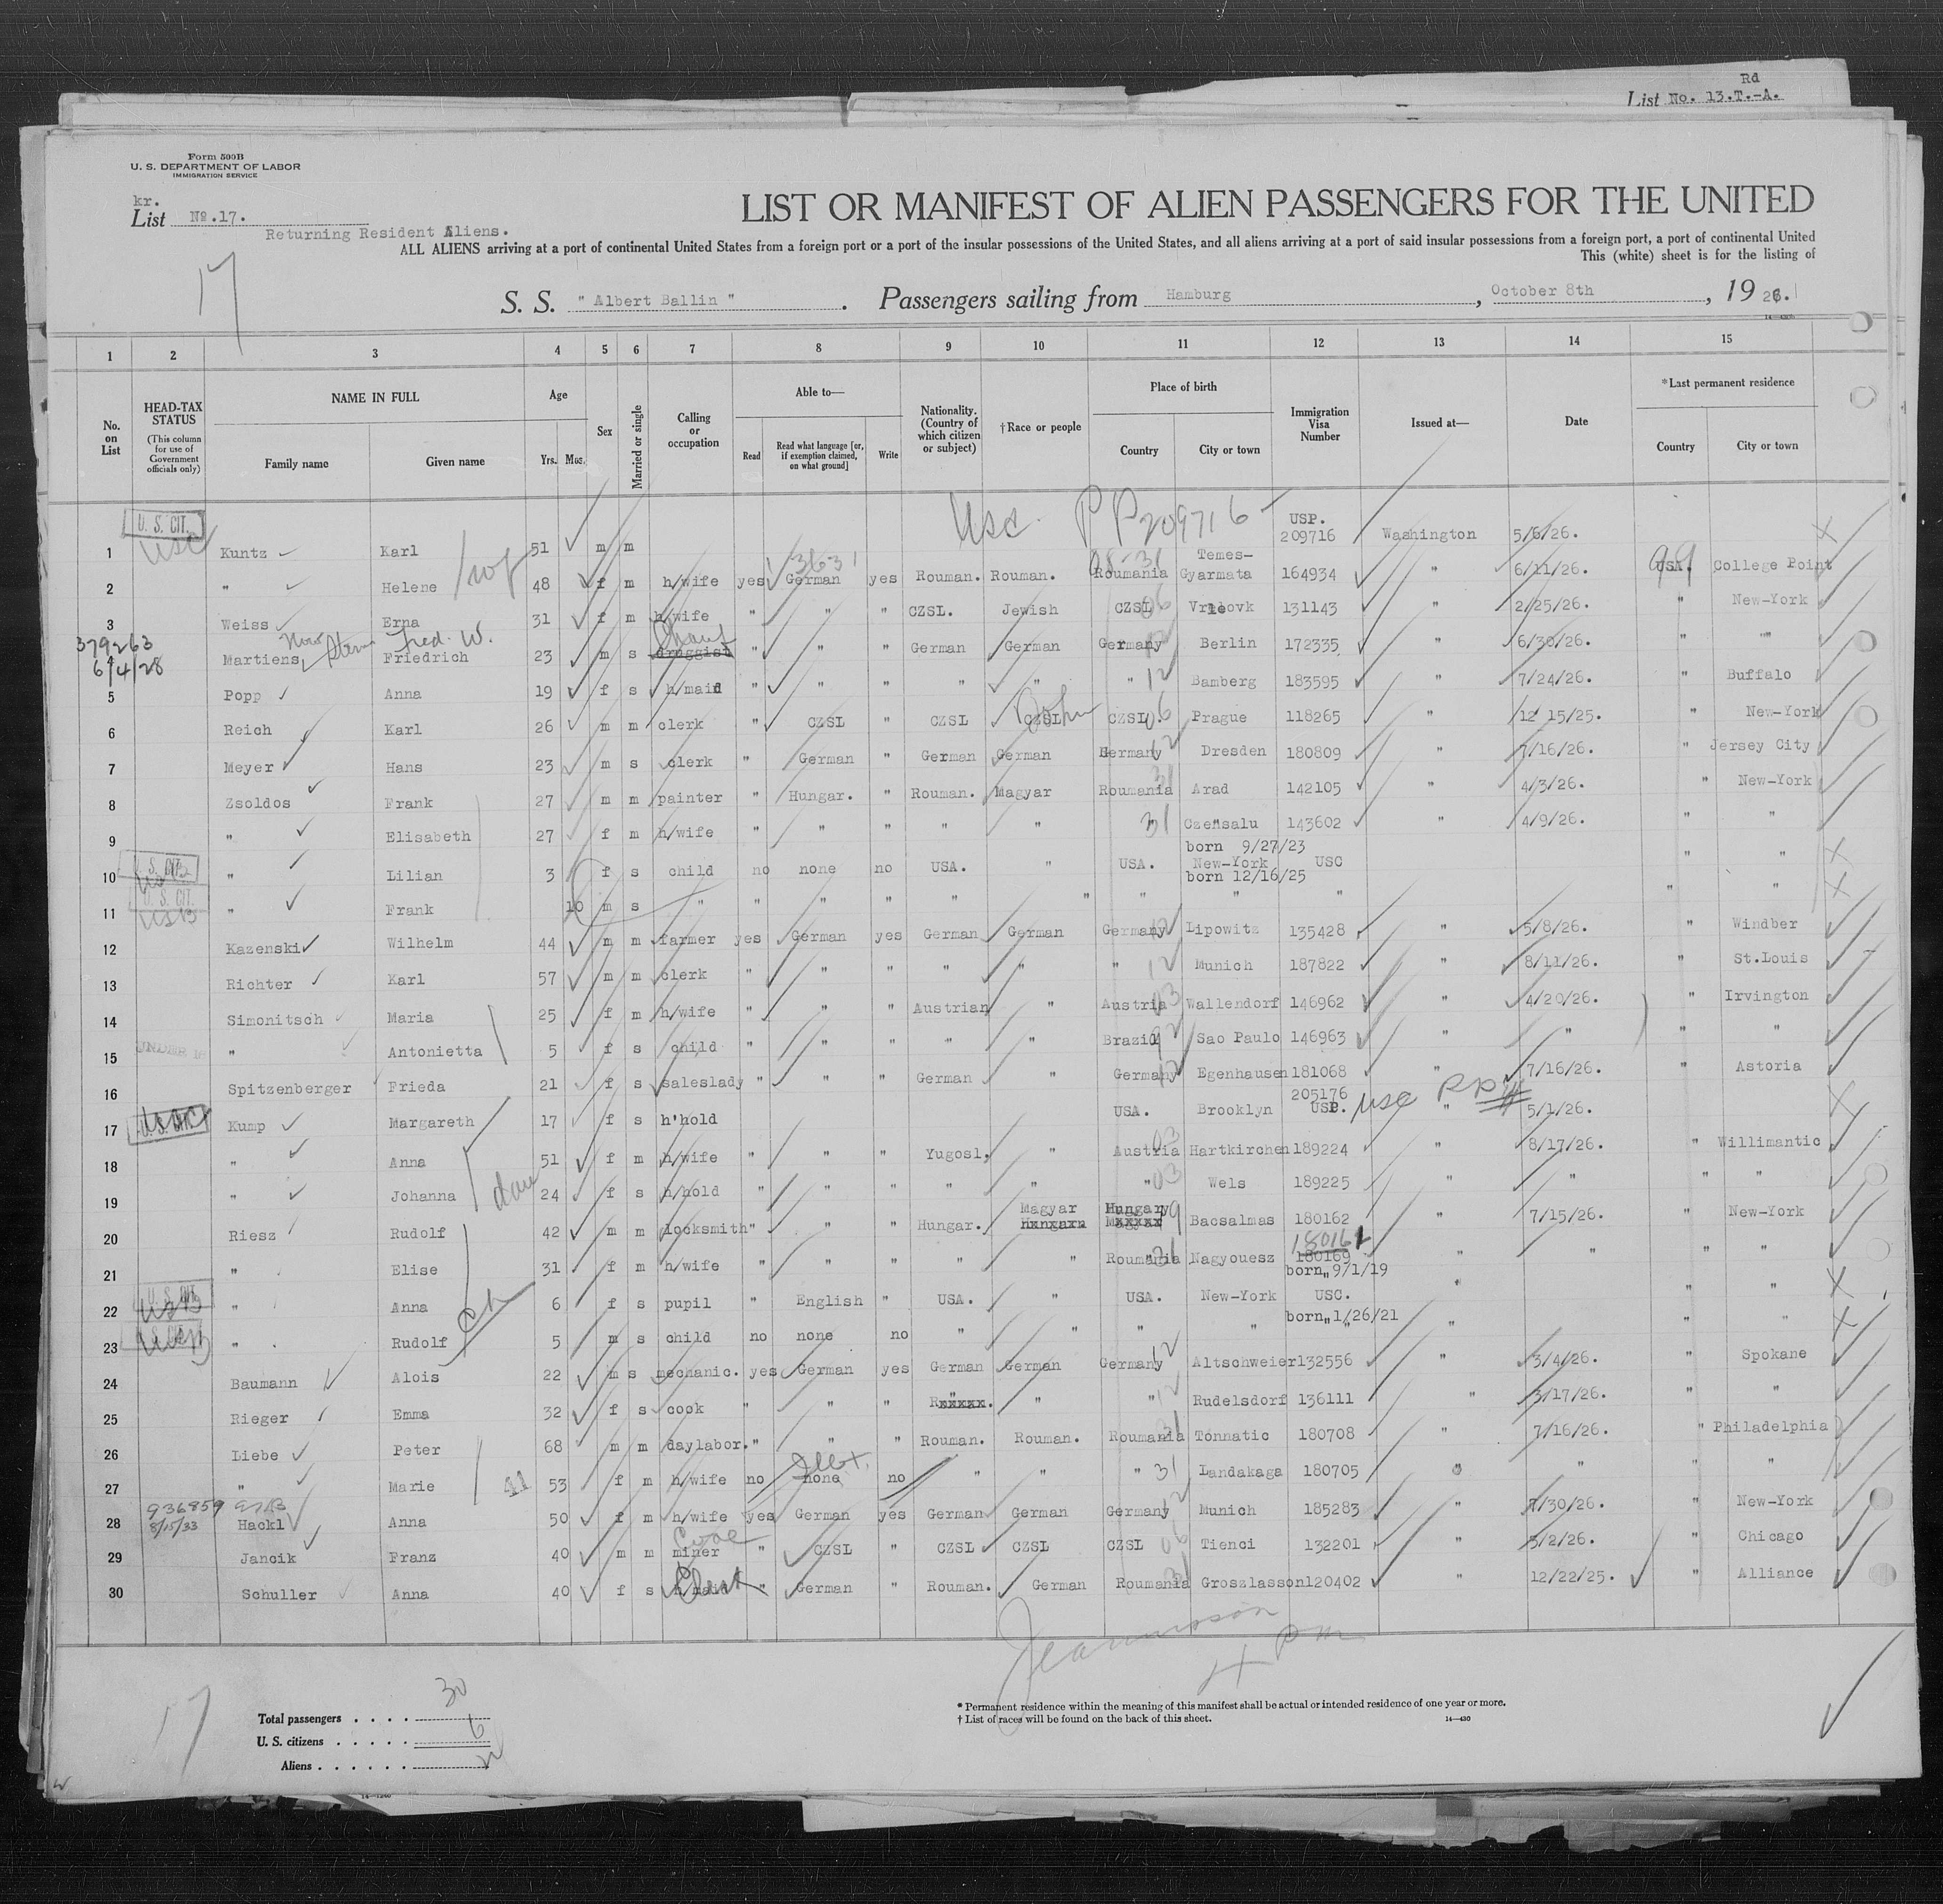 Rd
List No. 13.T.-A.
Form 500B
U. S. DEPARTMENT OF LABOR
IMMIGRATION SERVICE
kr.
List No.17.
Returning Resident Aliens.
17
LIST OR MANIFEST OF ALIEN PASSENGERS FOR THE UNITED
ALL ALIENS arriving at a port of continental United States from a foreign port or a port of the insular possessions of the United States, and all aliens arriving at a port of said insular possessions from a foreign port, a port of continental United
This (white) sheet is for the listing of
S. S. " Albert Ballin " . Passengers sailing from Hamburg , October 8th , 19 26.
1 2 3 4 5 6 7 8 9 10 11 12 13 14 15
No. on List
HEAD-TAX STATUS (This column for use of Government officials only)
NAME IN FULL
Family name Given name
Age
Yrs. Mos.
Sex
Married or single
Calling or occupation
Able to—
Read Read what language [or, if exemption claimed, on what ground] Write
Nationality. (Country of which citizen or subject)
†Race or people
Place of birth
Country City or town
Immigration Visa Number
Issued at—
Date
*Last permanent residence
Country City or town
USC. PP 209716
1 U. S. CIT. USC Kuntz Karl 51 m m USP. 209716 Washington 5/6/26. X
2 " Helene wf 48 f m h/wife yes German yes Rouman. Rouman. Roumania Temes-Gyarmata 164934 " 6/11/26. USA. 99 College Point
3 Weiss Erna 31 f m h/wife " " " CZSL. Jewish CZSL 06 131143 " 2/25/26. " New-York
379263 6/4/28 Martiens Now Stern Fred. W. Friedrich 23 m s druggist Chauf " " " German German Germany 12 Berlin 172335 " 6/30/26. " "
5 Popp Anna 19 f s h/maid " " " " " " 12 Bamberg 183595 " 7/24/26. " Buffalo
6 Reich Karl 26 m m clerk " CZSL " CZSL CZSL CZSL. 06 Prague 118265 " 12 15/25. " New-York
7 Meyer Hans 23 m s clerk " German " German German Germany 12 Dresden 180809 " 7/16/26. " Jersey City
8 Zsoldos Frank 27 m m painter " Hungar. " Rouman. Magyar Roumania 31 Arad 142105 " 4/3/26. " New-York
9 " Elisabeth 27 f m h/wife " " " " " " 31 143602 " 4/9/26. " "
10 U. S. CIT. " Lilian 3 f s child no none no USA. " USA. born 9/27/23 New-York USC " " X
11 U. S. CIT. USB " Frank 10 m s " " " " " " " born 12/16/25 " " " " X
12 Kazenski Wilhelm 44 m m farmer yes German yes German German Germany 12 Lipowitz 135428 " 5/8/26. " Windber
13 Richter Karl 57 m m clerk " " " " " " 12 Munich 187822 " 8/11/26. " St.Louis
14 Simonitsch Maria 25 f m h/wife " " " Austrian " Austria 03 Wallendorf 146962 " 4/20/26. " Irvington
15 UNDER 16 " Antonietta 5 f s child " " " " " Brazil 92 Sao Paulo 146963 " " " "
16 Spitzenberger Frieda 21 f s saleslady " " " German " Germany 12 Egenhausen 181068 " 7/16/26. " Astoria
17 U. S. CIT. Kump Margareth 17 f s h'hold USA. Brooklyn 205176 USP. USC PP# " 5/1/26. X
18 " Anna 51 f m h/wife " " " Yugosl. " Austria 03 Hartkirchen 189224 " 8/17/26. " Willimantic
19 " Johanna dau 24 f s h/hold " " " " " " 03 Wels 189225 " " " "
20 Riesz Rudolf 42 m m locksmith " " " Hungar. Magyar Hungary 19 Bacsalmas 180162 " 7/15/26. " New-York
21 " Elise 31 f m h/wife " " " " " Roumania 31 Nagyouesz 180169 " " " "
22 U. S. CIT. USB " Anna ch 6 f s pupil " English " USA. " USA. New-York born 9/1/19 USC. " " " X
23 U. S. CIT. USB " Rudolf 5 m s child no none no " " " " born 1/26/21 " " " " X
24 Baumann Alois 22 m s mechanic. yes German yes German German Germany 12 Altschweier 132556 " 3/4/26. " Spokane
25 Rieger Emma 32 f s cook " " " " " " 12 Rudelsdorf 136111 " 3/17/26. " "
26 Liebe Peter 68 m m daylabor. " " " Rouman. Rouman. Roumania 31 Tonnatic 180708 " 7/16/26. " Philadelphia
27 " Marie 41 53 f m h/wife no none Illit. no " " " 31 Landakaga 180705 " " " "
28 936859 8/15/33 Hackl Anna 50 f m h/wife yes German yes German German Germany 12 Munich 185283 " 7/30/26. " New-York
29 Jancik Franz 40 m m miner " CZSL " CZSL CZSL CZSL 06 Tienci 132201 " 3/2/26. " Chicago
30 Schuller Anna 40 f s h/maid " German " Rouman. German Roumania 31 Groszlasson 120402 " 12/22/25. " Alliance
4 pm
17
Total passengers . . . . 30
U. S. citizens . . . . . 6
Aliens . . . . . .
* Permanent residence within the meaning of this manifest shall be actual or intended residence of one year or more.
† List of races will be found on the back of this sheet.
14—430